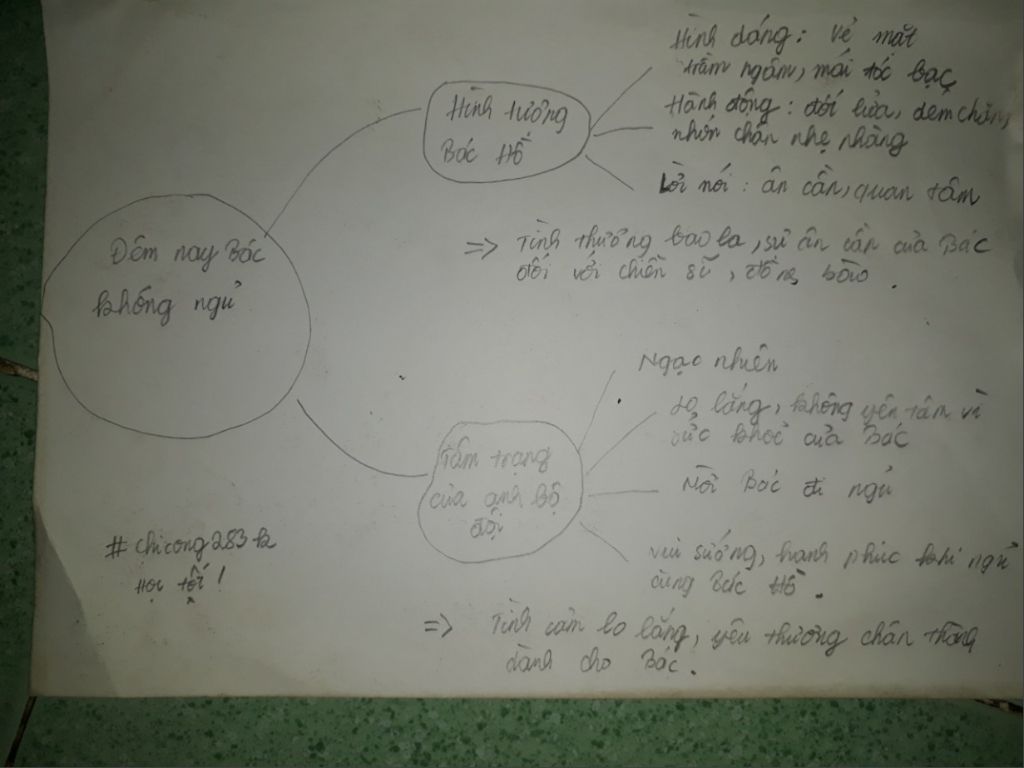 Đêm nay Bác
không ngủ
Hình tượng
Bác Hồ
Hình dáng: Vẻ mặt
trầm ngâm, mái tóc bạc
Hành động: đốt lửa, dem chăn,
nhón chân nhẹ nhàng
Lời nói: ân cần, quan tâm
=> Tình thương bao la, sự ân cần của Bác
đối với chiến sĩ, đồng bào.
Tâm trạng
của anh bộ
đội
Ngạo nhiên
Lo lắng, không yên tâm vì
sức khoẻ của Bác
Mời Bác đi ngủ
vui sướng, hạnh phúc khi ngủ
cùng Bác Hồ.
=> Tình cảm lo lắng, yêu thương chân thành
dành cho Bác.
# chicong283k
Học tốt!